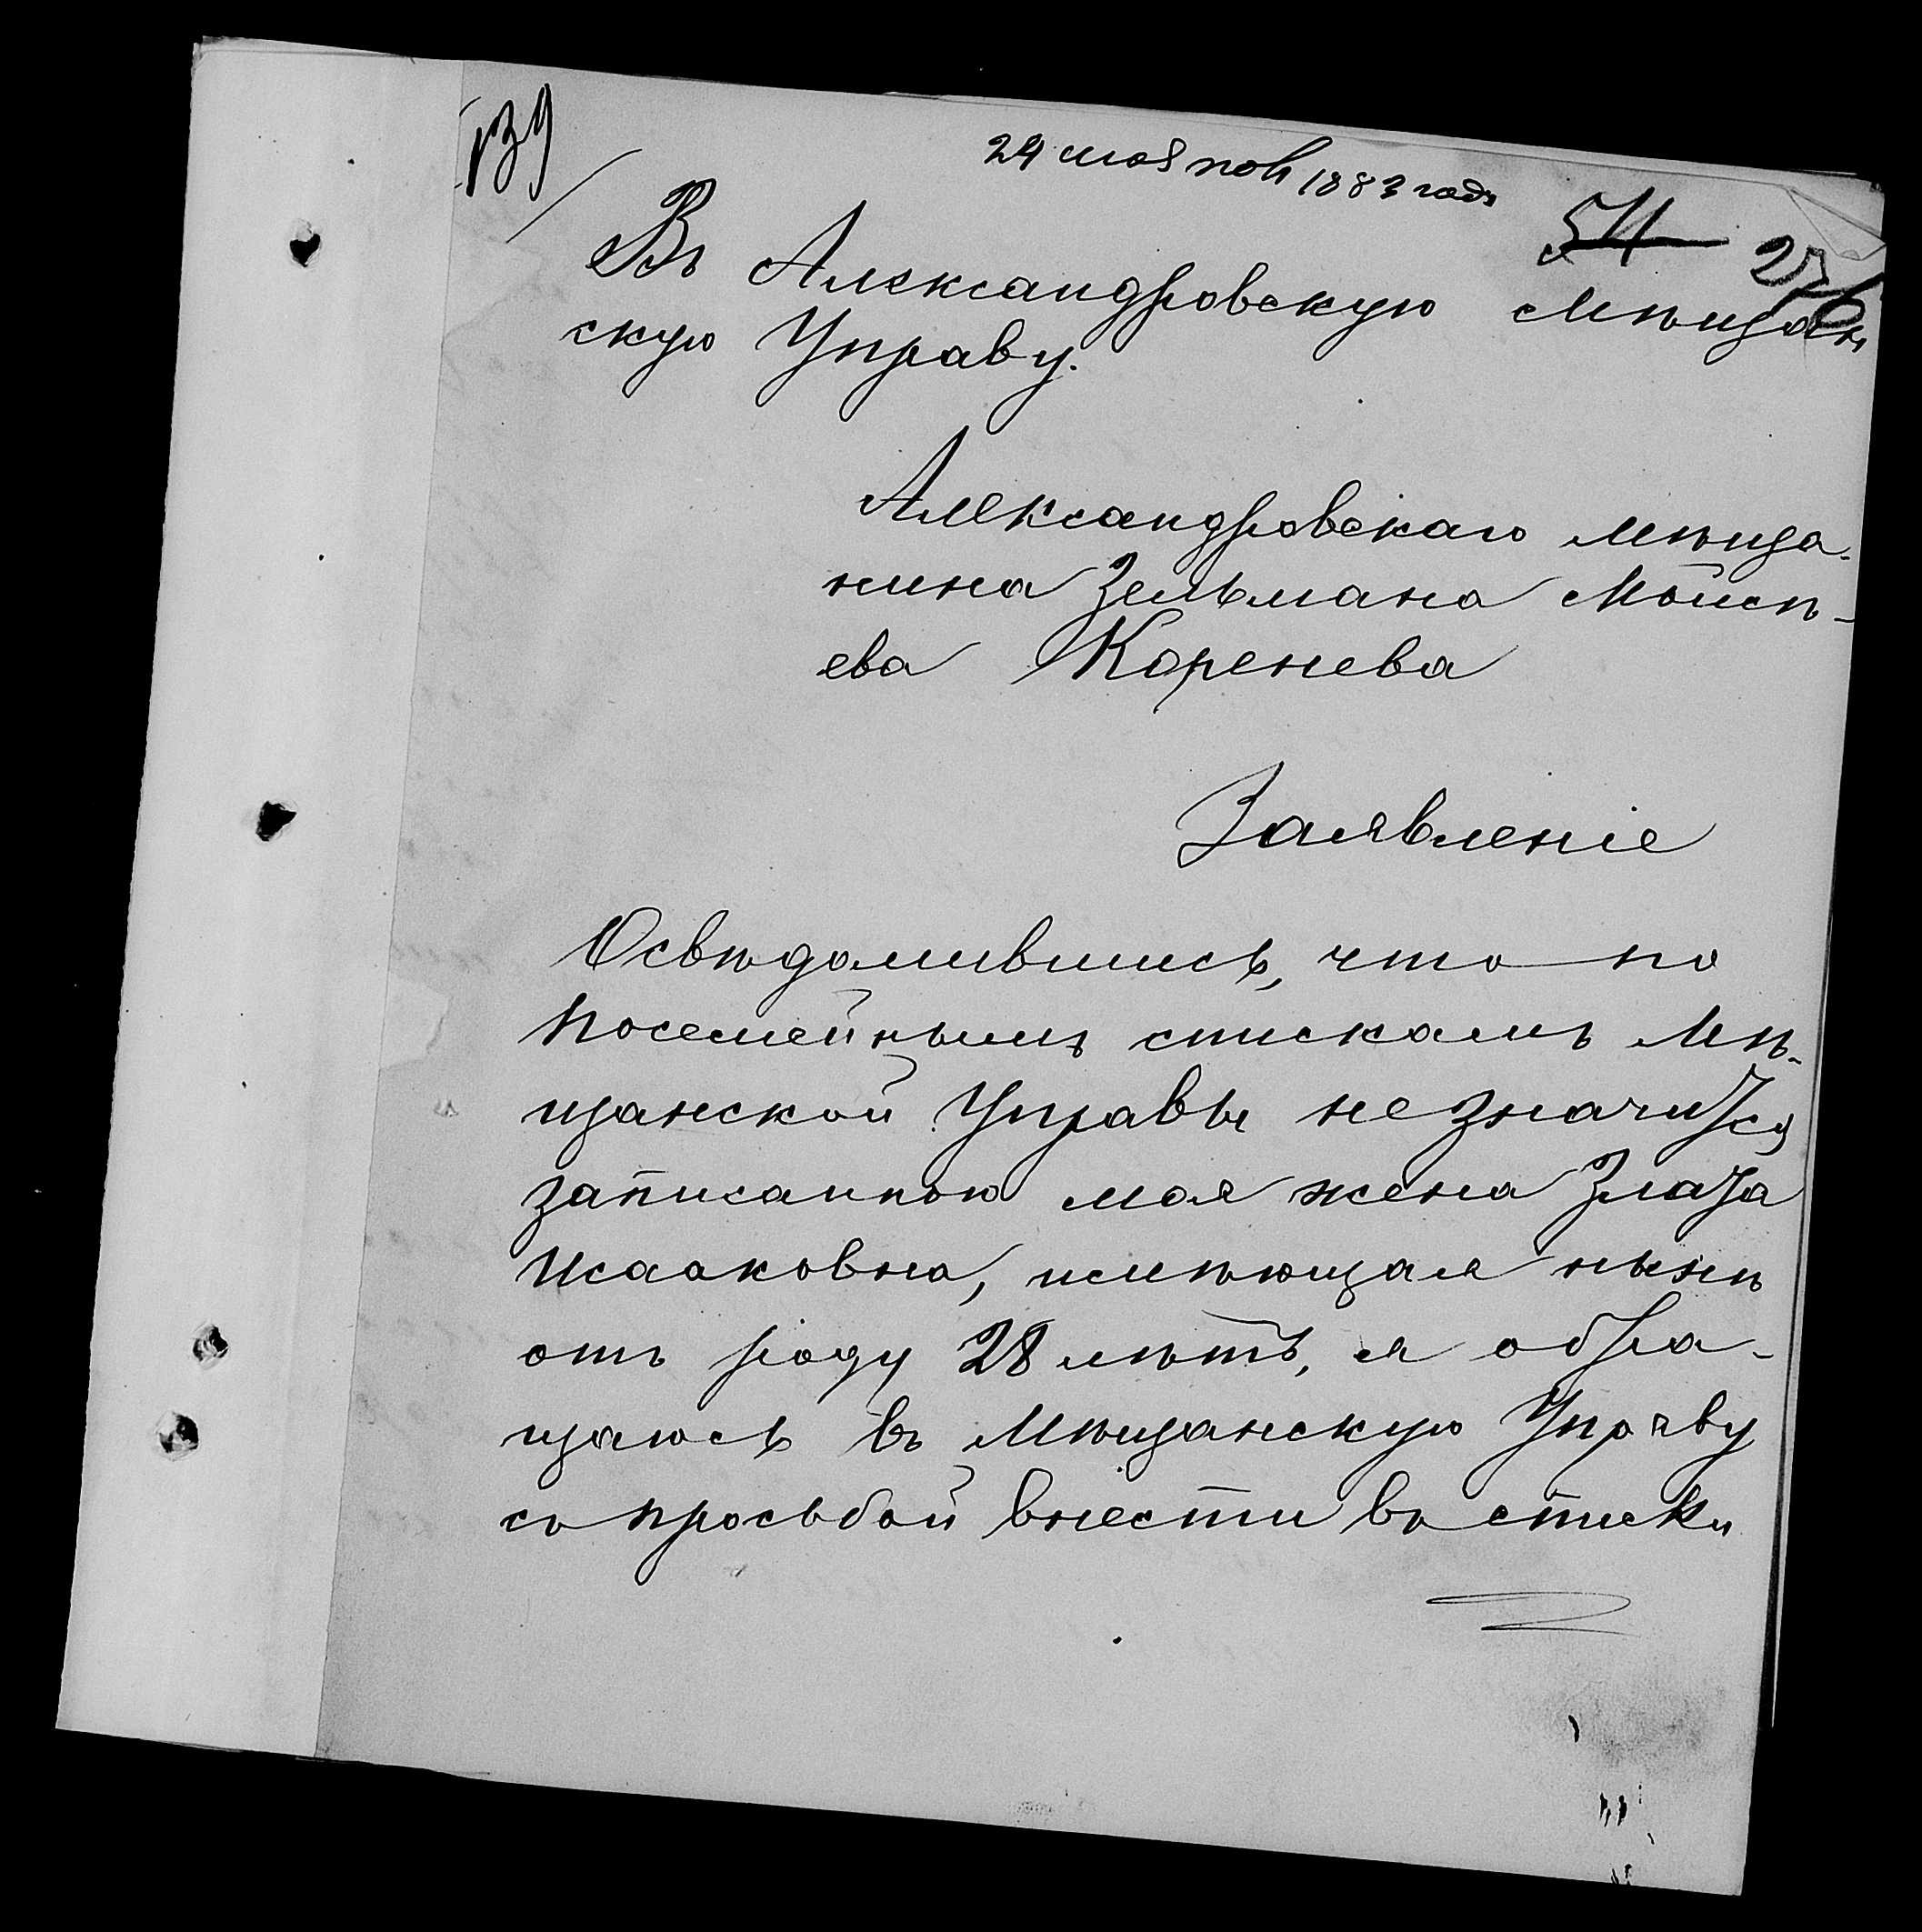 139
24 мая 1883 года
54 276
Въ Александровскую Мѣщан
скую Управу.
Александровскаго мѣща-
нина Зельмана Моисѣ-
ева Коренева
Заявленіе
Освѣдомившись, что по
посемейнымъ спискамъ Мѣ-
щанской Управы не значится
записанною моя жена Злата
Исааковна, имѣющая нынѣ
отъ роду 28 лѣтъ, я обра-
щаюсь въ Мѣщанскую Управу
съ просьбой внести въ списки